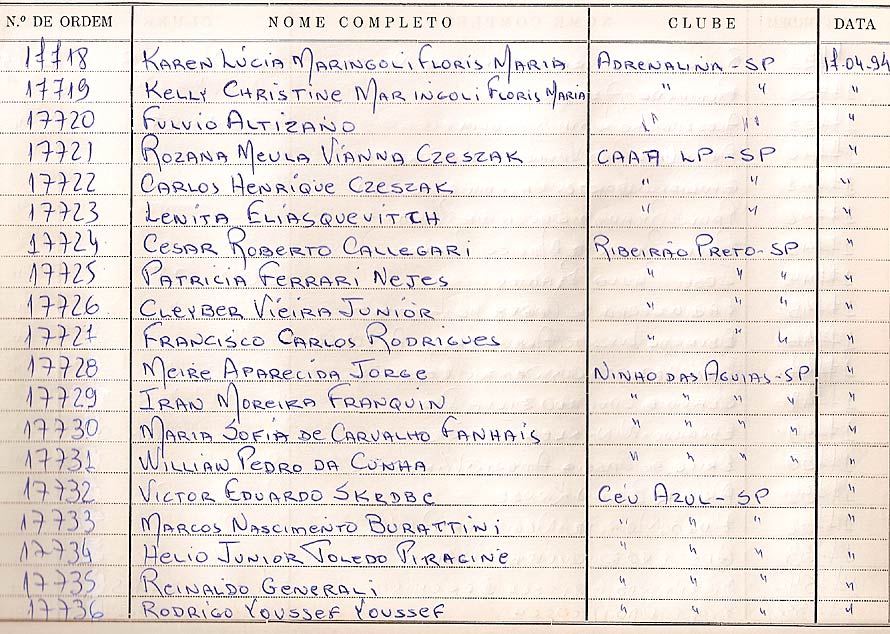 N.º DE ORDEM NOME COMPLETO CLUBE DATA
17718 KAREN LÚCIA MARINGOLI FLORIS MARIA ADRENALINA - SP 17.04.94
17719 KELLY CHRISTINE MARINGOLI FLORIS MARIA " " "
17720 FULVIO ALTIZANO " " "
17721 ROZANA MEULA VIANNA CZESZAK CAAA LP - SP "
17722 CARLOS HENRIQUE CZESZAK " " "
17723 LENITA ELIASQUEVITCH " " "
17724 CESAR ROBERTO CALLEGARI RIBEIRÃO PRETO - SP "
17725 PATRICIA FERRARI NEJES " " " "
17726 CLEYBER VIEIRA JUNIOR " " " "
17727 FRANCISCO CARLOS RODRIGUES " " " "
17728 MEIRE APARECIDA JORGE NINHO DAS AGUIAS - SP "
17729 IRAN MOREIRA FRANQUIN " " " " "
17730 MARIA SOFIA DE CARVALHO FANHAIS " " " " "
17731 WILLIAN PEDRO DA CUNHA " " " " "
17732 VICTOR EDUARDO SKRDBC CÉU AZUL - SP "
17733 MARCOS NASCIMENTO BURATTINI " " " "
17734 HELIO JUNIOR TOLEDO PIRAGINE " " " "
17735 REINALDO GENERALI " " " "
17736 RODRIGO YOUSSEF YOUSSEF " " " "